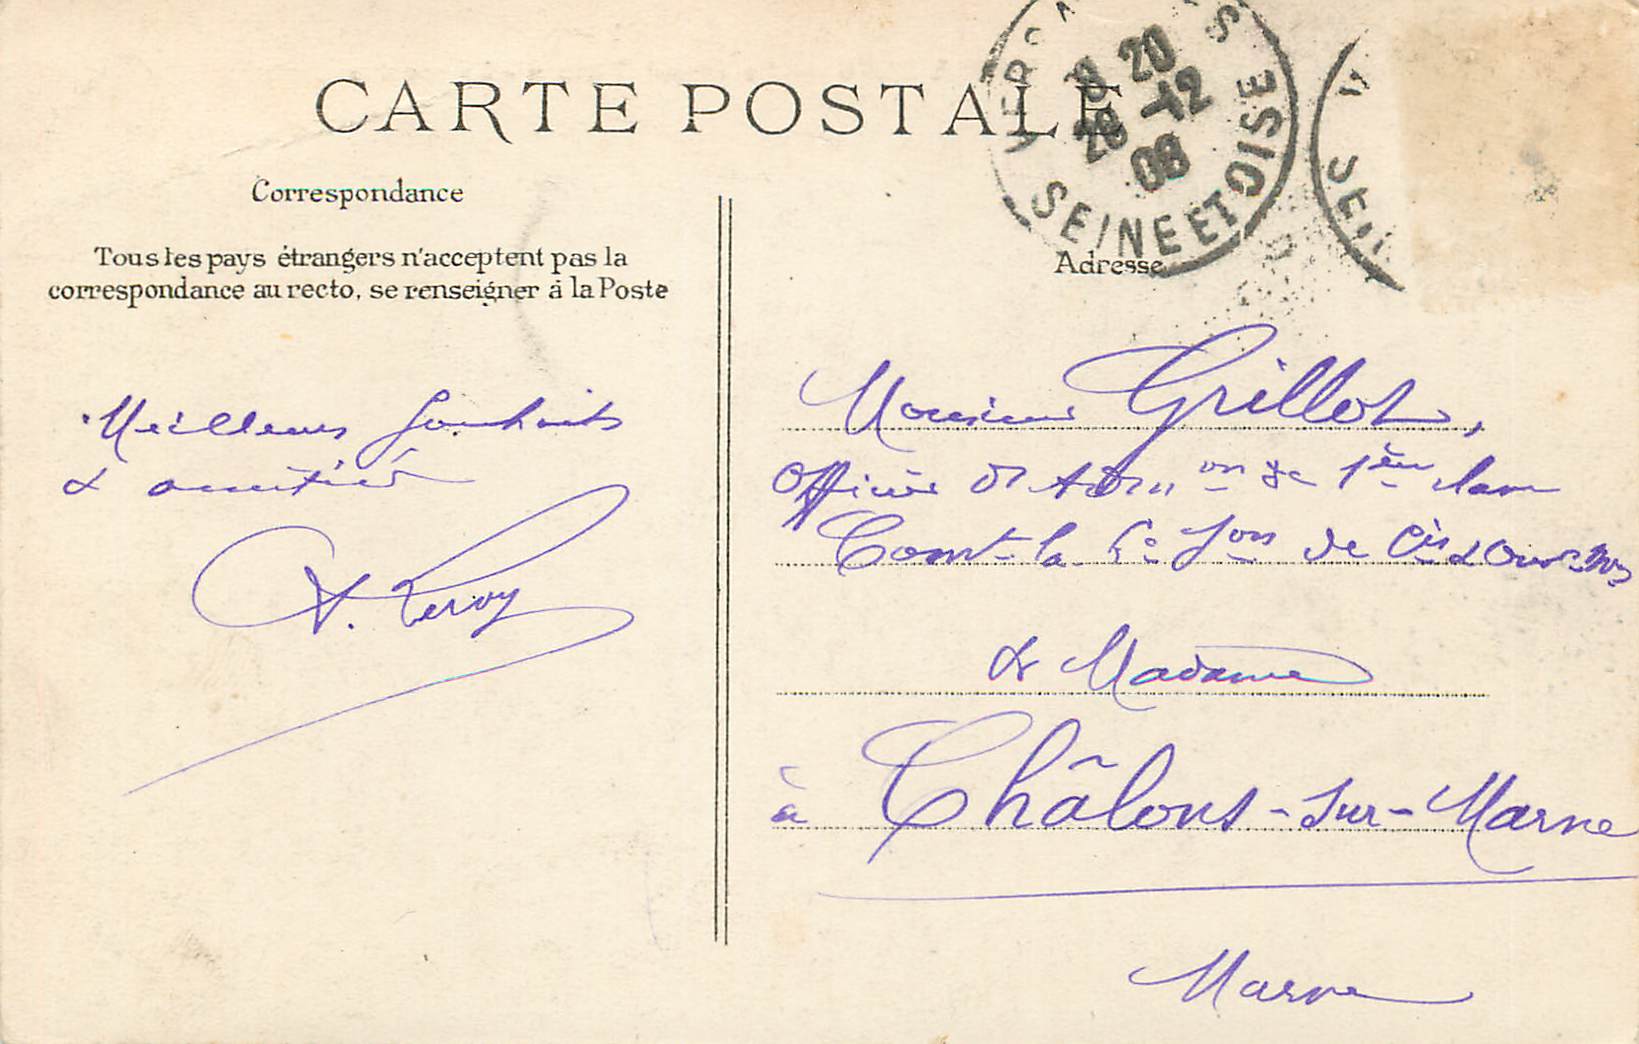 CARTE POSTALE
Correspondance
Tous les pays étrangers n'acceptent pas la
correspondance au recto, se renseigner à la Poste
Adresse
VERSAILLES
20
28 -12
08
SEINE ET OISE
Meilleurs Souhaits
& amitiés
A. Leroy
Monsieur Grillot,
Officier d'Adm on de 1ère classe
Comt la 6e Son de Cis & Ouvrs Mres
& Madame
à Châlons-sur-Marne
Marne